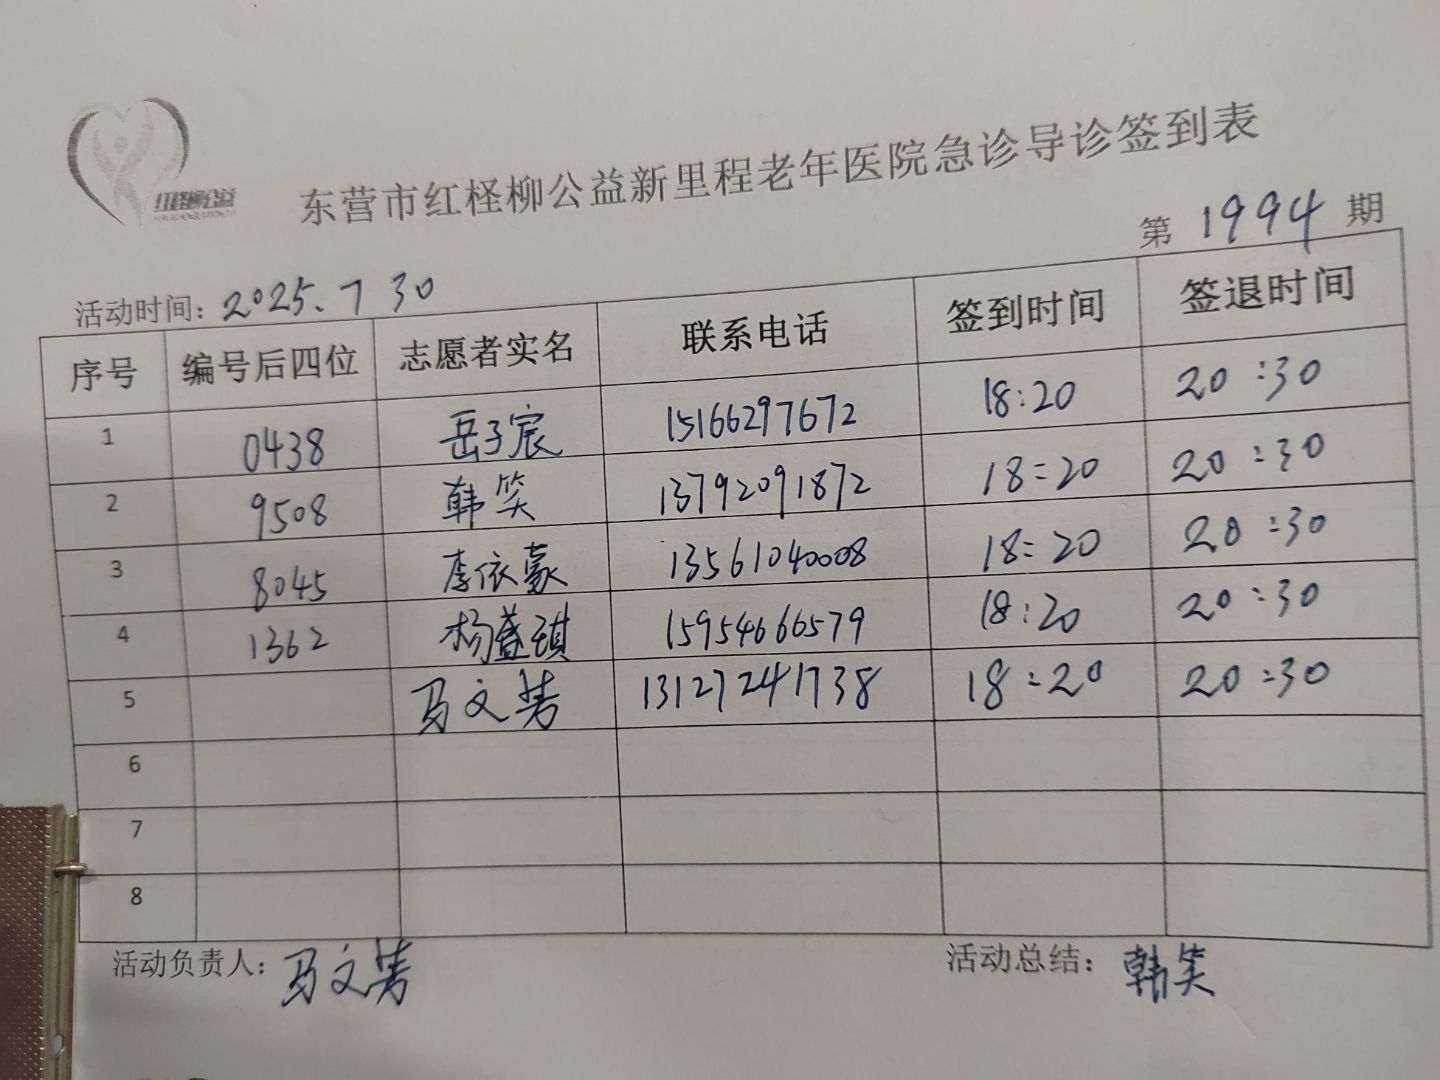 红柽柳公益
东营市红柽柳公益新里程老年医院急诊导诊签到表
第 1994 期
活动时间: 2025.7 30
序号 编号后四位 志愿者实名 联系电话 签到时间 签退时间
1 0438 岳子宸 15166297672 18:20 20:30
2 9508 韩笑 13792091872 18:20 20:30
3 8045 李依蒙 13561040008 18:20 20:30
4 1362 杨益琪 15954666579 18:20 20:30
5 马文芳 13127241738 18:20 20:30
6
7
8
活动负责人: 马文芳 活动总结: 韩笑